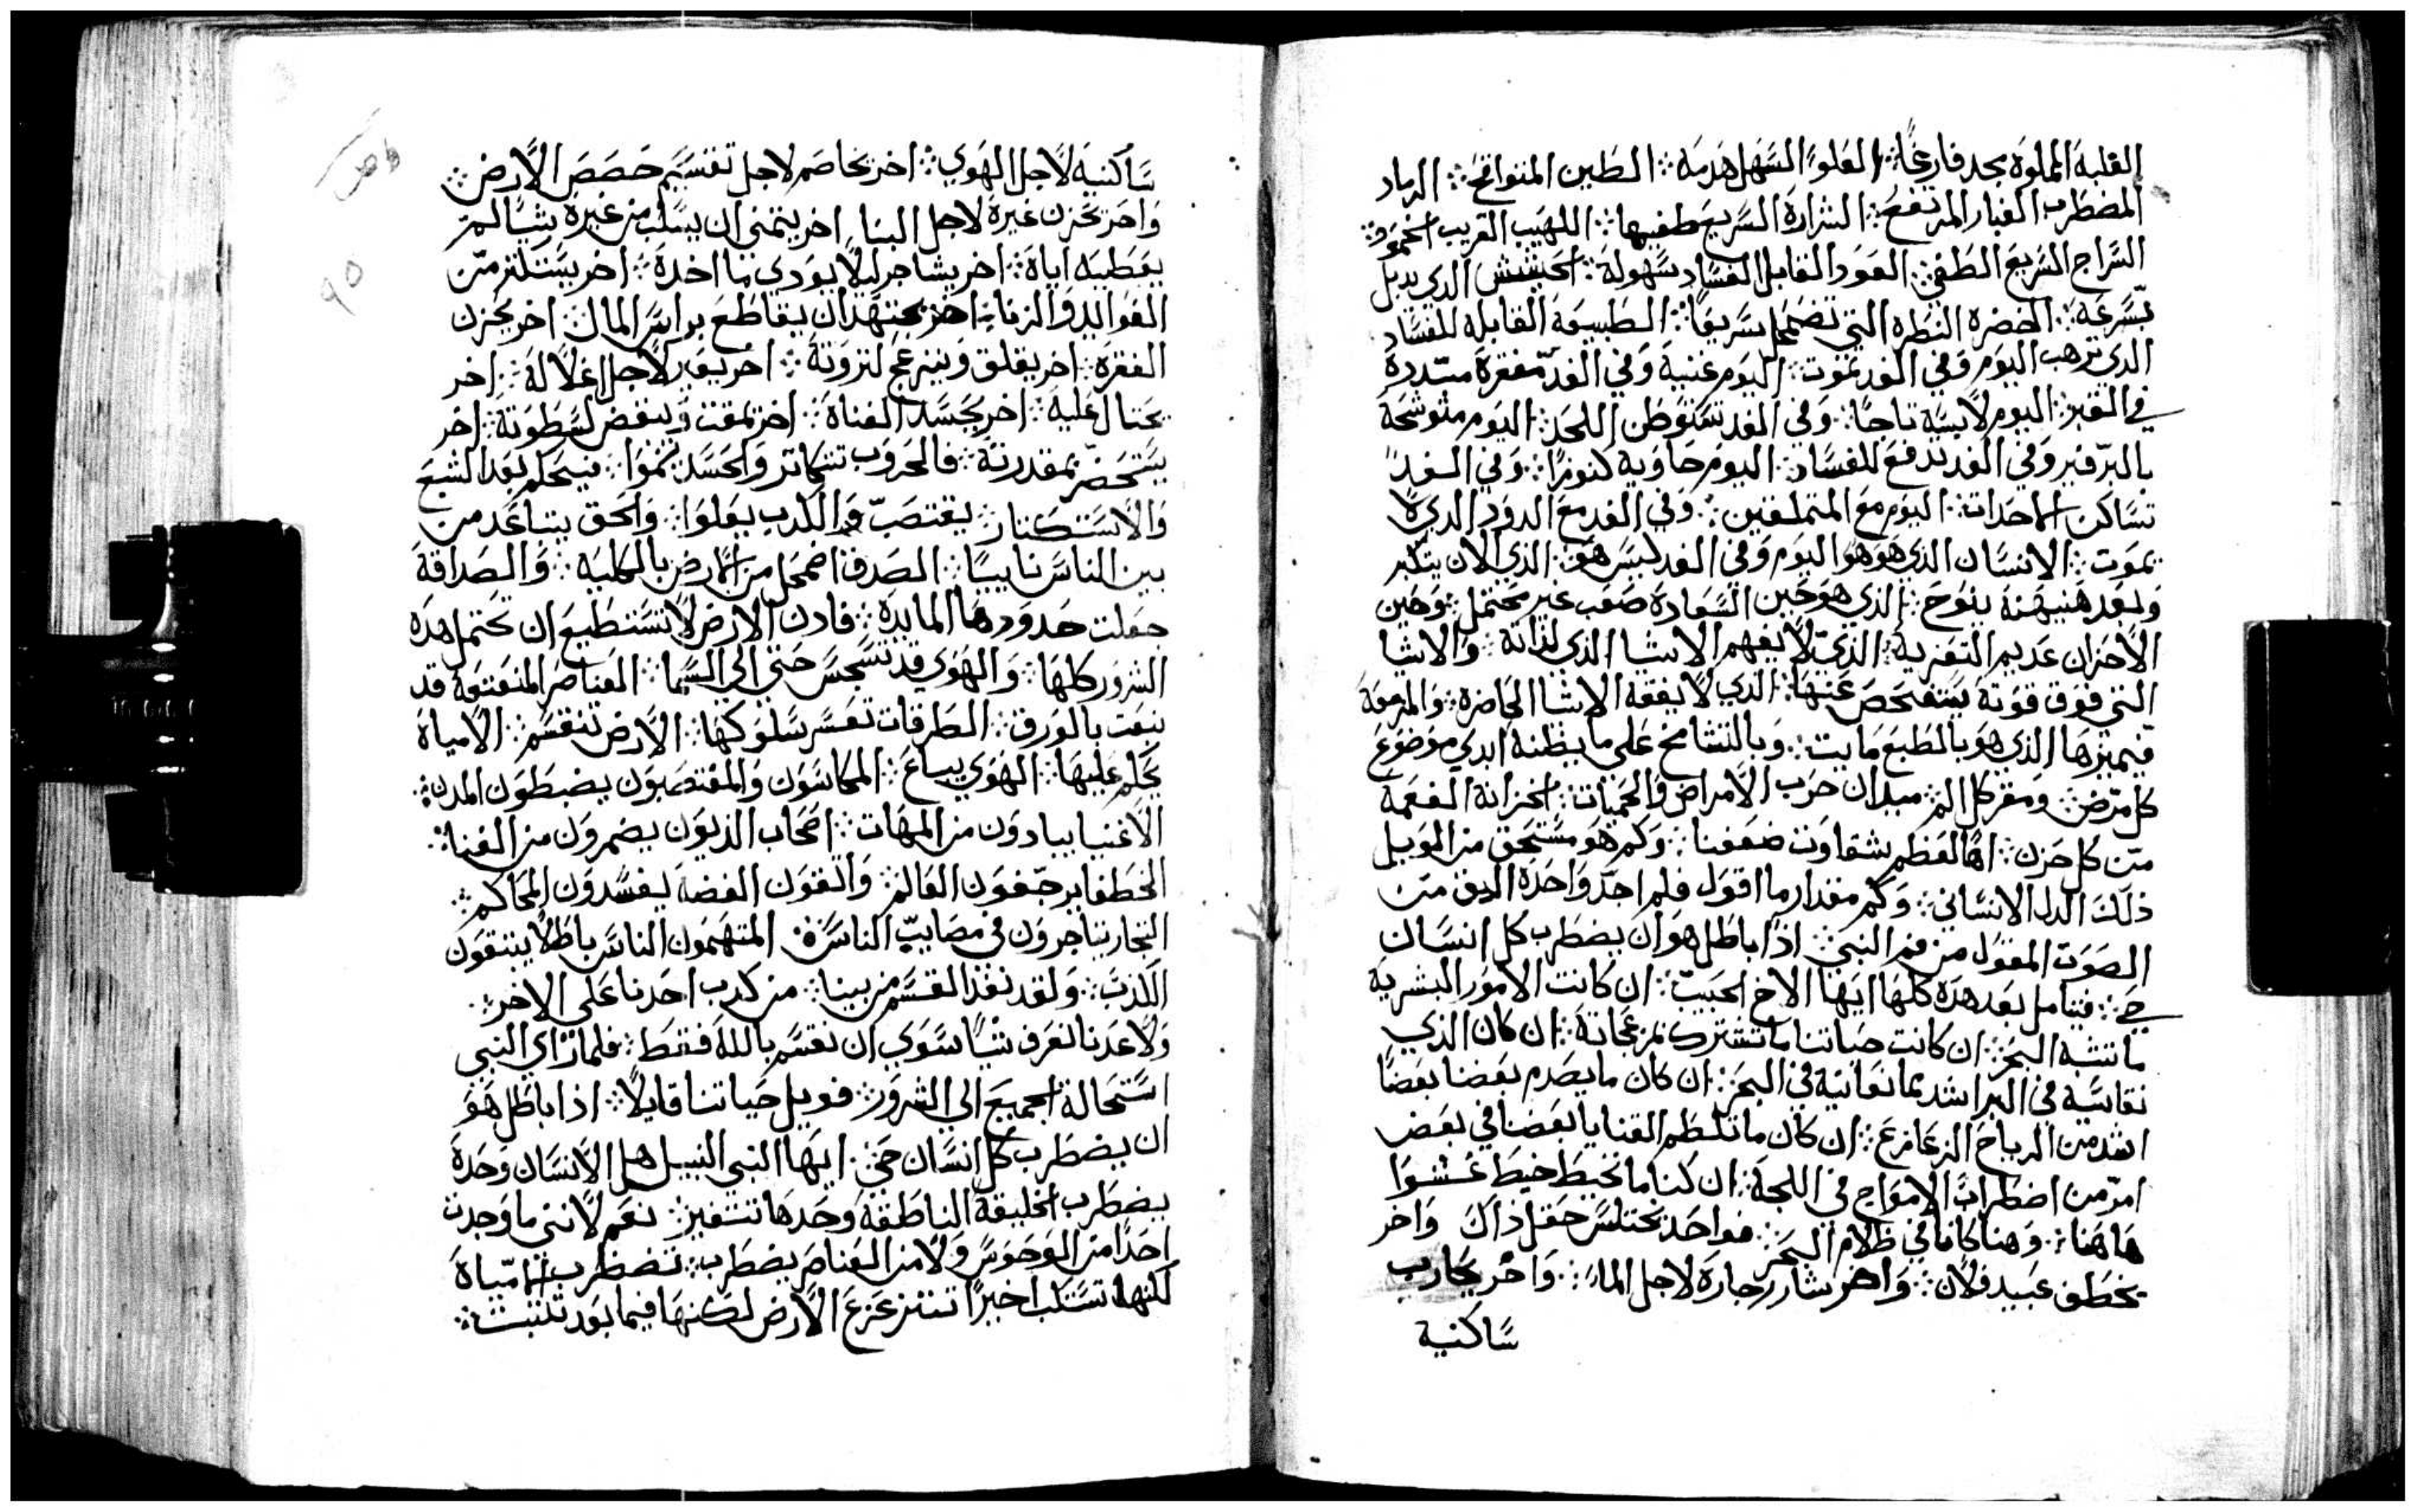 القلبة المملوة بجد فارغاً ⁘ العلو السهل هدمه ⁘ الطين المتواقح ⁘ الرماد
المضطرب الغبار المرتفع ⁘ الشرارة السريع طفيها ⁘ اللهيب القريب الخمود ⁘
السراج السريع الطفي ⁘ العود القابل الفساد بسهولة ⁘ الحشيش الذي يدبل
بسرعة ⁘ الخضرة النظرة التي تضمحل سريعاً ⁘ الطبيعة القابلة للفساد
الذي ترهب اليوم وفي الغد تموت ⁘ اليوم غنية وفي الغد مفقرة
في القبر ⁘ اليوم لابسة تاجاً ⁘ وفي الغد تستوطن اللحد ⁘ اليوم متوشحة
بالبرفير وفي الغد تدفع للفساد ⁘ اليوم حاوية كنوزاً ⁘ وفي الغد
تساكن الاحداث ⁘ اليوم مع المتملقين ⁘ وفي الغد مع الدود الذي لا
يموت ⁘ الانسان الذي هو هو اليوم وفي الغد ليس هو ⁘ الذي الان يتكبر
وبعد هنيهة ينوح ⁘ الذي هو حين السعادة صعب غير محتمل ⁘ وحين
الاحزان عديم التعزية ⁘ الذي لا يفهم الاشيا الذي لذاته ⁘ والاشيا
التي فوق قوته يستفحص عنها ⁘ الذي لا يفقه الاشيا الحاضرة ⁘ والمزمعة
فيميزها الذي هو بالطبع مايت ⁘ وبالتشامخ على ما يظنه ابدي موضوع
كل مرض ⁘ ومقر كل الم ⁘ ميدان حرب الامراض والحميات ⁘ الخزانة الفعمة
من كل حزن ⁘ اها لعظم شقاوت ضعفنا ⁘ وكم هو مستحق من العويل
ذلك الدل الانساني ⁘ وكم مقدار ما اقول فلم اجد واحدة اليق من
الصوت المقول من فم النبي ⁘ اذاً باطل هو ان يضطرب كل انسان
حي ⁘ فتامل بعد هذه كلها ايها الاخ الحبيب ⁘ ان كانت الامور البشرية
ما تشبه البحر ⁘ ان كانت حياتنا ما تشترك بمزعجاته ⁘ ان كان الذي
نقاسيه في البر اشد مما نعانيه في البحر ⁘ ان كان ما يصدم بعضنا بعضاً
اشد من الرياح الزعازع ⁘ ان كان ما تلطم القنايا بعضنا في بعض
امر من اضطراب الامواج في اللجة ⁘ ان كنا ما نخبط خبط عشوا
هاهنا ⁘ وهنا كاننا في ظلام البحر ⁘ فواحد يختلس حقل ذاك واخر
يخطف عبيد فلان ⁘ واخر يشارر جاره لاجل الماء ⁘ واخر يحارب
ساكنية
ساكنية لاجل الهوي ⁘ اخر يخاصم لاجل تقسيم حصص الارض ⁘
واخر يحزن غيره لاجل البنا اخر يتمني ان يسلب من غيره شيا لم
يعطيه اياه ⁘ اخر يشاجر ليلا يودي ما اخده ⁘ اخر يستلتزمن
الفوايد والربا ⁘ اخر يجتهد ان يقاطع براس المال ⁘ اخر يحزن
الفقرة ⁘ اخر يقلق وينزعج لثروته ⁘ اخر يغير لاجل اغلاله ⁘ اخر
يحتال عليه ⁘ اخر يحسد الغناه ⁘ اخر يمقت وينغض لسطوته ⁘ اخر
يستحضر بمقدرته ⁘ فالحروب تتكاتر والحسد ينموا ⁘ فيحلم بعد الشبع
والاستكتار ⁘ يغتصب والكدب يعلوا ⁘ والحق يتباعد من
بين الناس نايياً ⁘ الصدق اضمحل من الارض بالكلية ⁘ والصداقة
جعلت حدودها المايدة ⁘ فادن الارض لا تستطيع ان تحتمل هذه
الشرور كلها ⁘ والهوي قد تسجس حتي الي السما ⁘ العناصر المنعتقة قد
بيعت بالورق ⁘ الطرقات تعسر سلوكها ⁘ الارض تنقسم ⁘ الامياه
يحلم عليها ⁘ الهوي يباع ⁘ المكاسون والمغتصبون يضبطون المدن ⁘
الاغنيا يبادون من المهات ⁘ اصحاب الديون يضمرون من الغنا ⁘
الخطفا يرجفون العالم ⁘ والقون الفضه ليفسدون المحاكم ⁘
التجار يتاجرون في مصايب الناس ⁘ المتهمون الناس باطلاً ينتقون
اللذت ⁘ ولقد نفذ القسم من بيننا ⁘ من كدب احدنا على الاخر ⁘
ولا عدنا نعرف شيا سوي ان نقسم بالله فقط ⁘ فلما راي النبي
استحالة الجميع الي الشرور ⁘ فويل حياتنا قايلاً ⁘ اذا باطل هو
ان يضطرب كل انسان حي ⁘ ايها النبي النبيل هل الانسان وحده
يضطرب الخليقة الناطقة وحدها تتغير ⁘ نعم لانني ما وجدت
احداً من الوحوش ولا من العناصر يضطرب ⁘ تضطرب المياه
لكنها تستكب اخيراً تتزعزع الارض لكنها فيما بعد تتثبت ⁘
٩٥